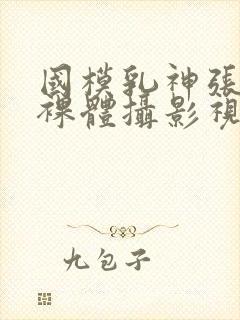 國模乳神張
裸體攝影視
九包子